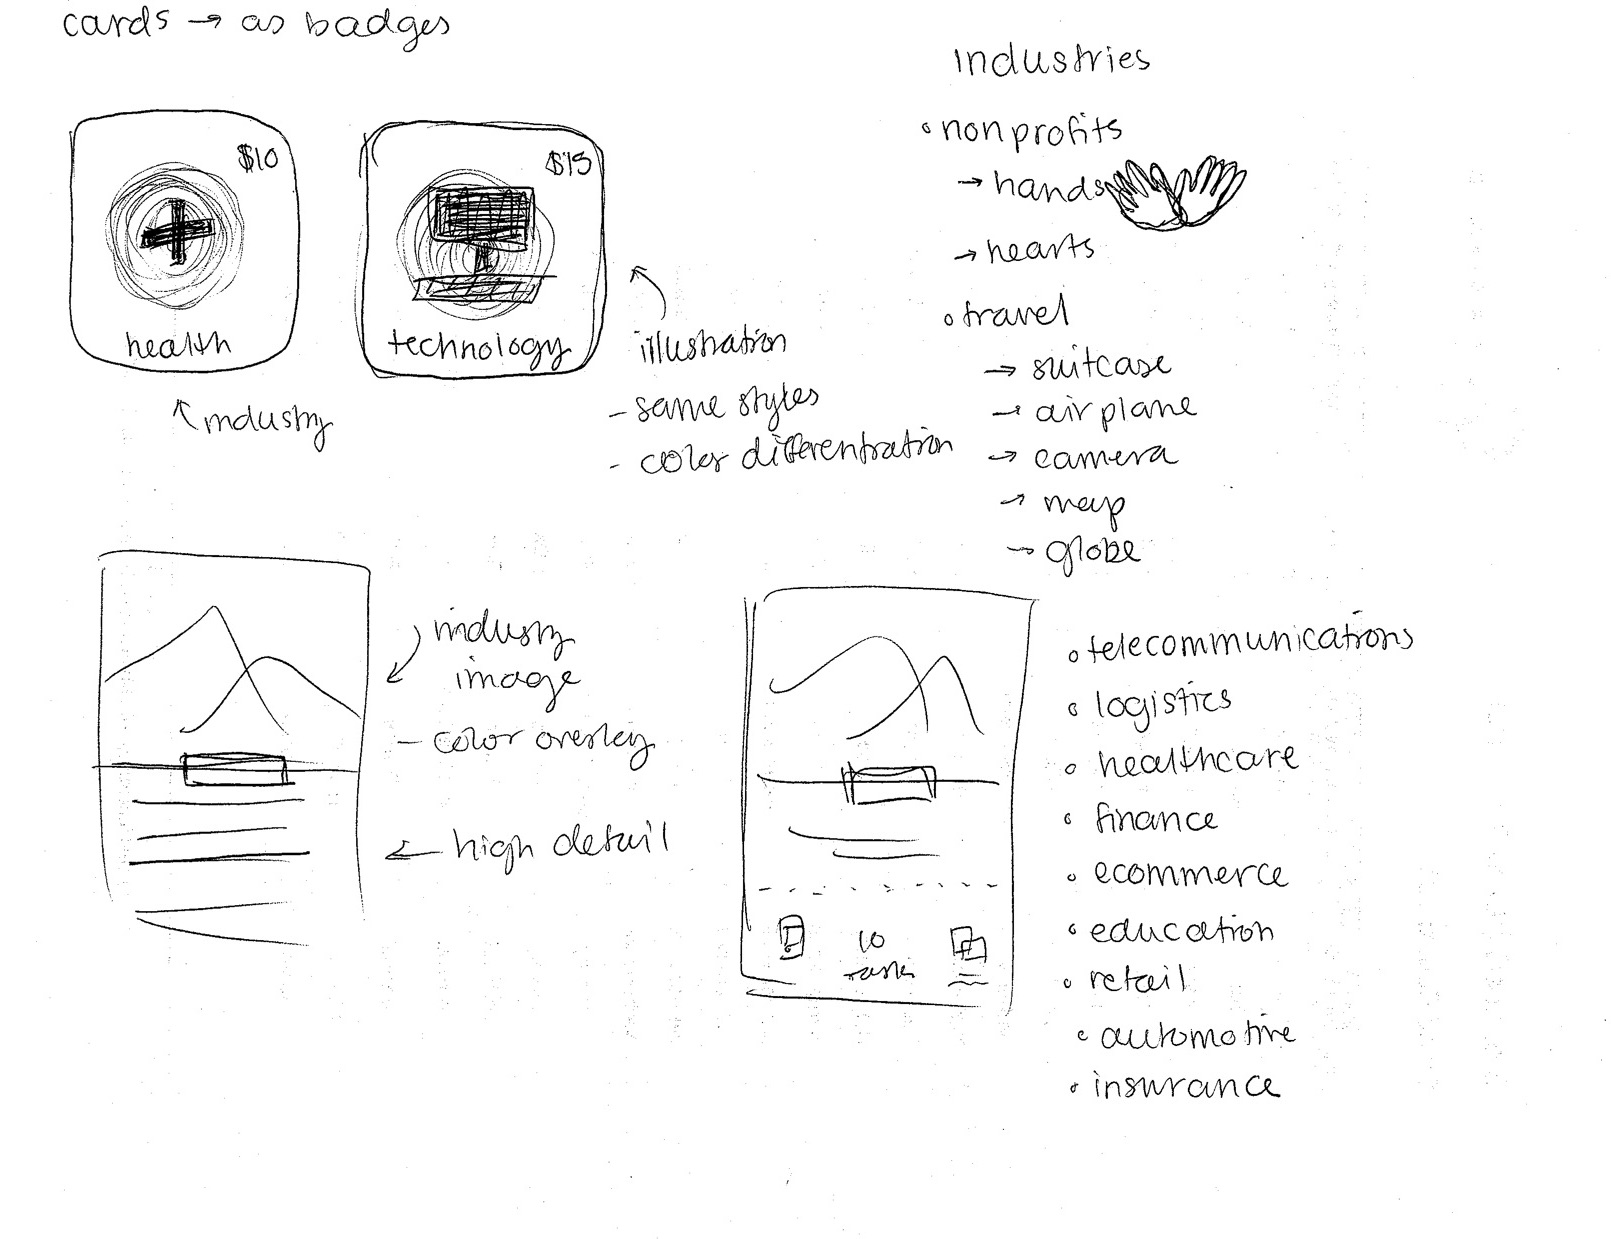 cards → as badges
$10
health
↖ industry
$15
technology
illustration
- same styles
- color differentration
industries
◦ nonprofits
→ hands
→ hearts
◦ travel
→ suitcase
→ airplane
→ camera
→ map
→ globe
industry
image
- color overlay
← high detail
10
tasks
◦ telecommunications
◦ logistics
◦ healthcare
◦ finance
◦ ecommerce
◦ education
◦ retail
◦ automotive
◦ insurance